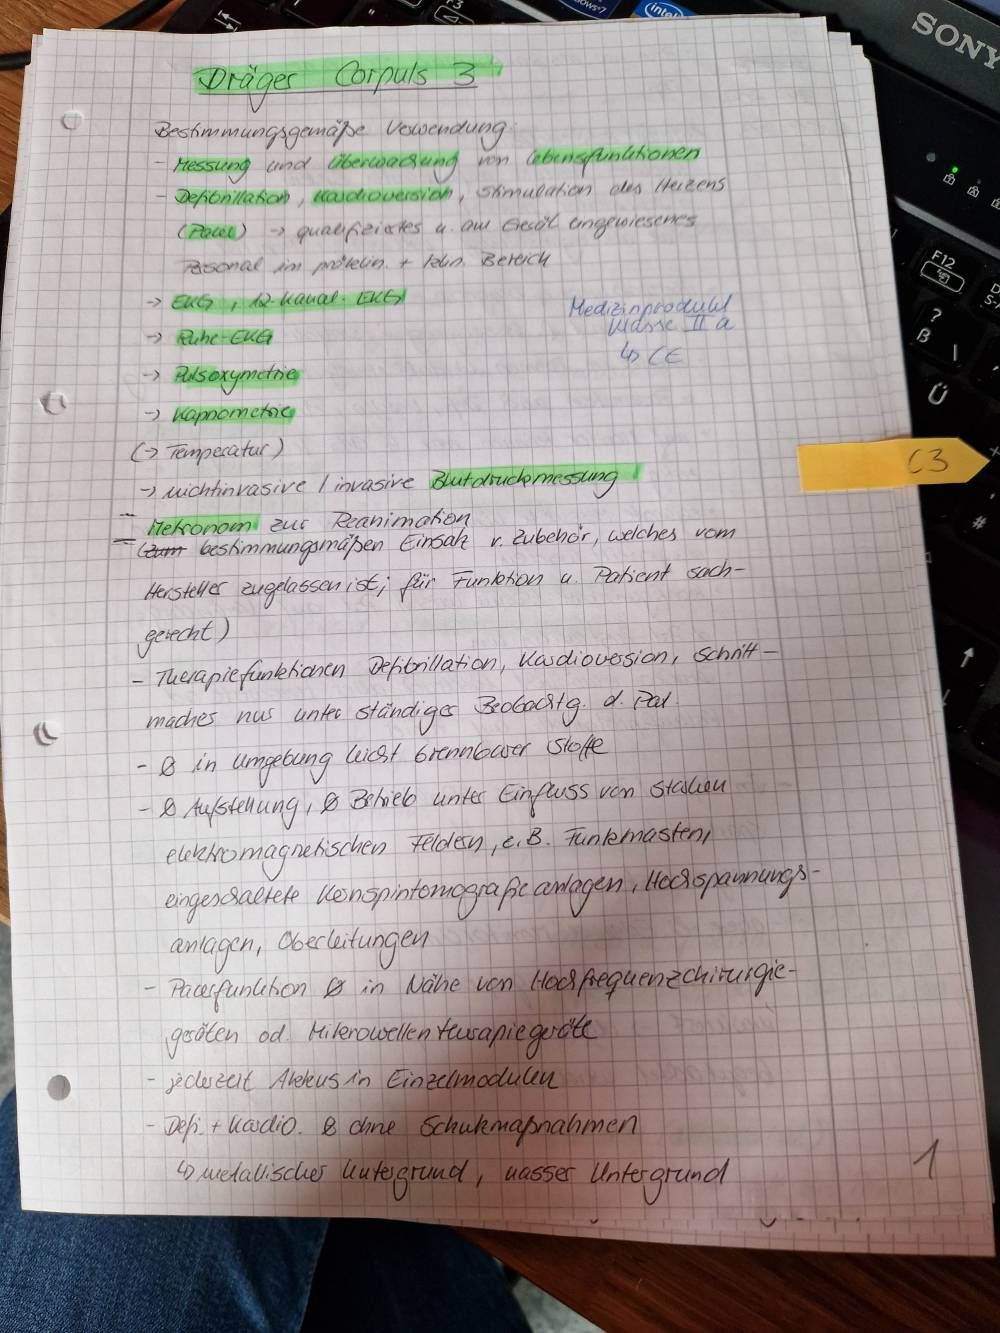 Dräger Corpuls 3
Bestimmungsgemäße Verwendung:
- Messung und Überwachung von Lebensfunktionen
- Defibrillation, Kardioversion, Stimulation des Herzens
(Pacer) → qualifiziertes u. auf Gerät eingewiesenes
Personal im präklin. + klin. Bereich
→ EKG, 12-Kanal-EKG
→ Ruhe-EKG
→ Pulsoxymetrie
→ Kapnometrie
(→ Temperatur)
→ nichtinvasive / invasive Blutdruckmessung
- Metronom zur Reanimation
- (zum bestimmungsmäßen Einsatz v. Zubehör, welches vom
Hersteller zugelassen ist; für Funktion u. Patient sach-
gerecht)
- Therapiefunktionen Defibrillation, Kardioversion, Schritt-
macher nur unter ständiger Beobachtg. d. Pat.
- Ø in Umgebung leicht brennbarer Stoffe
- Ø Aufstellung, Ø Betrieb unter Einfluss von starken
elektromagnetischen Feldern, z.B. Funkmasten,
eingeschaltete Kernspintomografieanlagen, Hochspannungs-
anlagen, Oberleitungen
- Pacerfunktion Ø in Nähe von Hochfrequenzchirurgie-
geräten od. Mikrowellentherapiegeräte
- jederzeit Akkus in Einzelmodulen
- Defi. + Kardio. Ø ohne Schutzmaßnahmen
↳ metallischer Untergrund, nasser Untergrund
Medizinprodukt
Klasse II a
↳ CE
C3
1
SONY
intel
F12
F3
ß
?
Ü
#